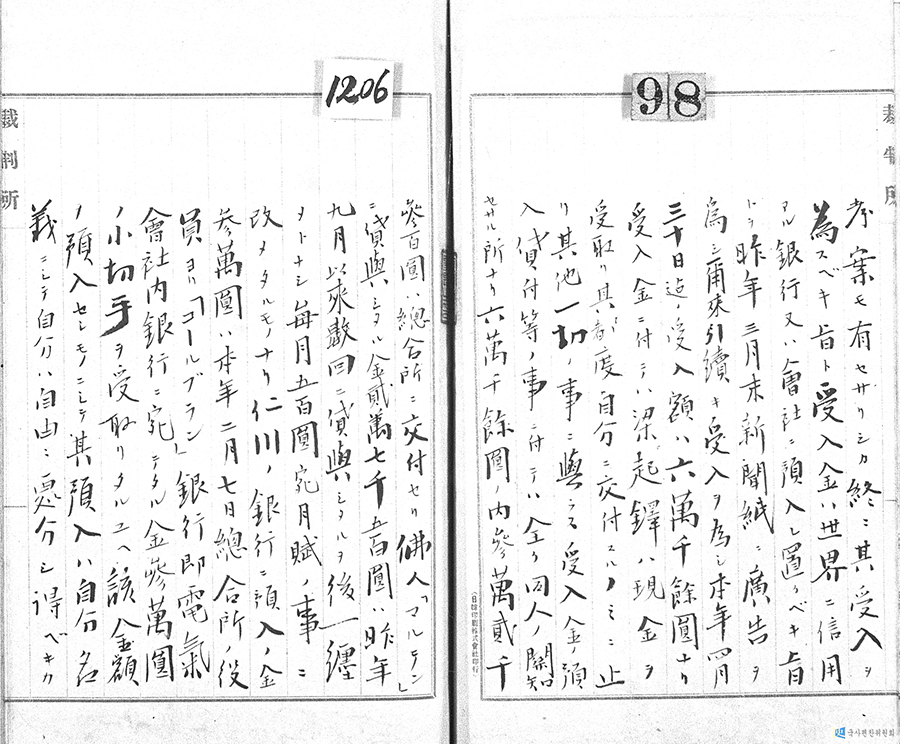 98
裁判所
考案モ有セサリシカ終ニ其受入ヲ
為スベキ旨ト受入金ハ世界ニ信用
アル銀行又ハ會社ニ預入レ置クベキ旨
トヲ昨年三月末新聞紙ニ廣告ヲ
為シ爾來引續キ受入ヲ為シ本年四月
三十日迄ノ受入額ハ六萬千餘圓ナリ
受入金ニ付テハ梁起鐸ハ現金ヲ
受取リ其都度自分ニ交付スルノミニ止
リ其他一切ノ事ニ與ラス受入金ノ預
入貸付等ノ事ニ付テハ全ク同人ノ關知
セサル所ナリ六萬千餘圓ノ内參萬貳千
(日韓印刷株式會社印行)
1206
參百圓ハ總合所ニ交付セリ佛人「マルテン」
ニ貸與シタル金貳萬七千五百圓ハ昨年
九月以來數回ニ貸與シタルヲ後一纏
ヲトナシ毎月五百圓宛月賦ノ事ニ
改メタルモノナリ仁川ノ銀行ニ預入ノ金
參萬圓ハ本年二月七日總合所ノ役
員ヨリ「コールブラン」銀行即電氣
會社内銀行ニ宛テタル金參萬圓
ノ小切手ヲ受取リタルユヘ該金額
ノ預入セシモノニシテ其預入ハ自分名
義ニシテ自分ハ自由ニ處分シ得ベキカ
裁判所
국사편찬위원회